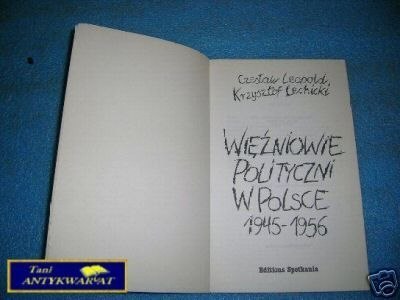 Czesław Leopold,
Krzysztof Lechicki
WIĘŹNIOWIE
POLITYCZNI
W POLSCE
1945-1956
Editions Spotkania
Tani
ANTYKWARYAT